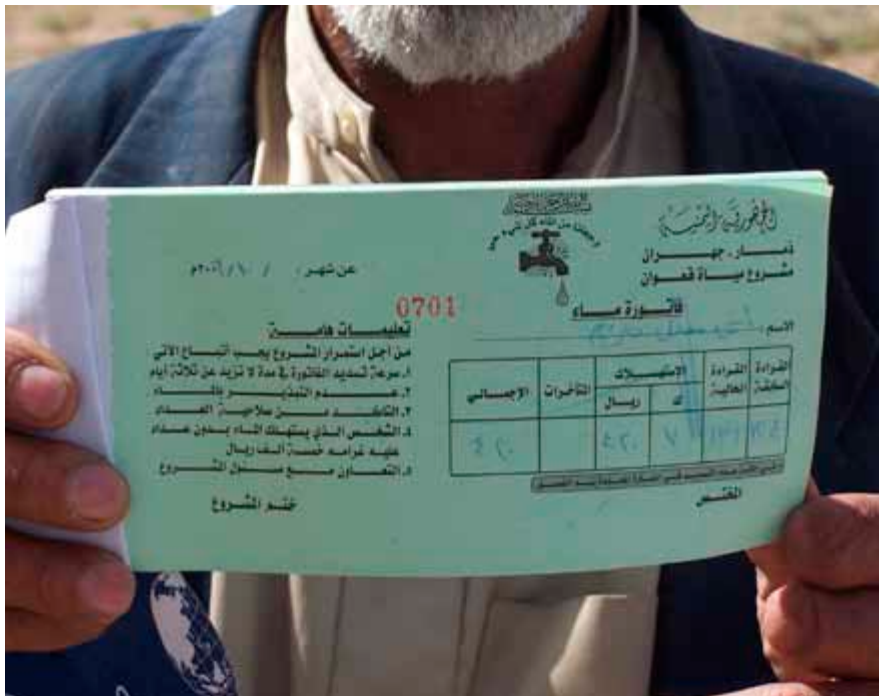 الجمهورية اليمنية
ذمار - جهران
مشروع مياة قعوان
وجعلنا من الماء كل شيء حي
عن شهر / /
0701
فاتورة ماء
الاسم:
القراءة السابقة
القراءة الحالية
الاستهلاك
ك
ريال
المتأخرات
الإجمالي
المختص
تعليمات هامة
من أجل استمرار المشروع يجب اتباع الآتي :
١. سرعة تسديد الفاتورة في مدة لا تزيد عن ثلاثة أيام
٢. عدم التبذير بالماء
٣. التأكد من صلاحية العداد
٤. الشخص الذي يستهلك الماء بدون عداد
عليه غرامه خمسة الف ريال
٥. التعاون مع مسئول المشروع
ختم المشروع